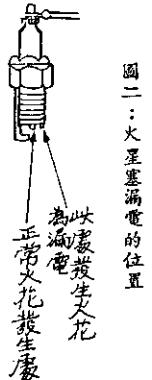 圖二：火星塞漏電的位置
此處發生火花
為漏電
正常火花發生處